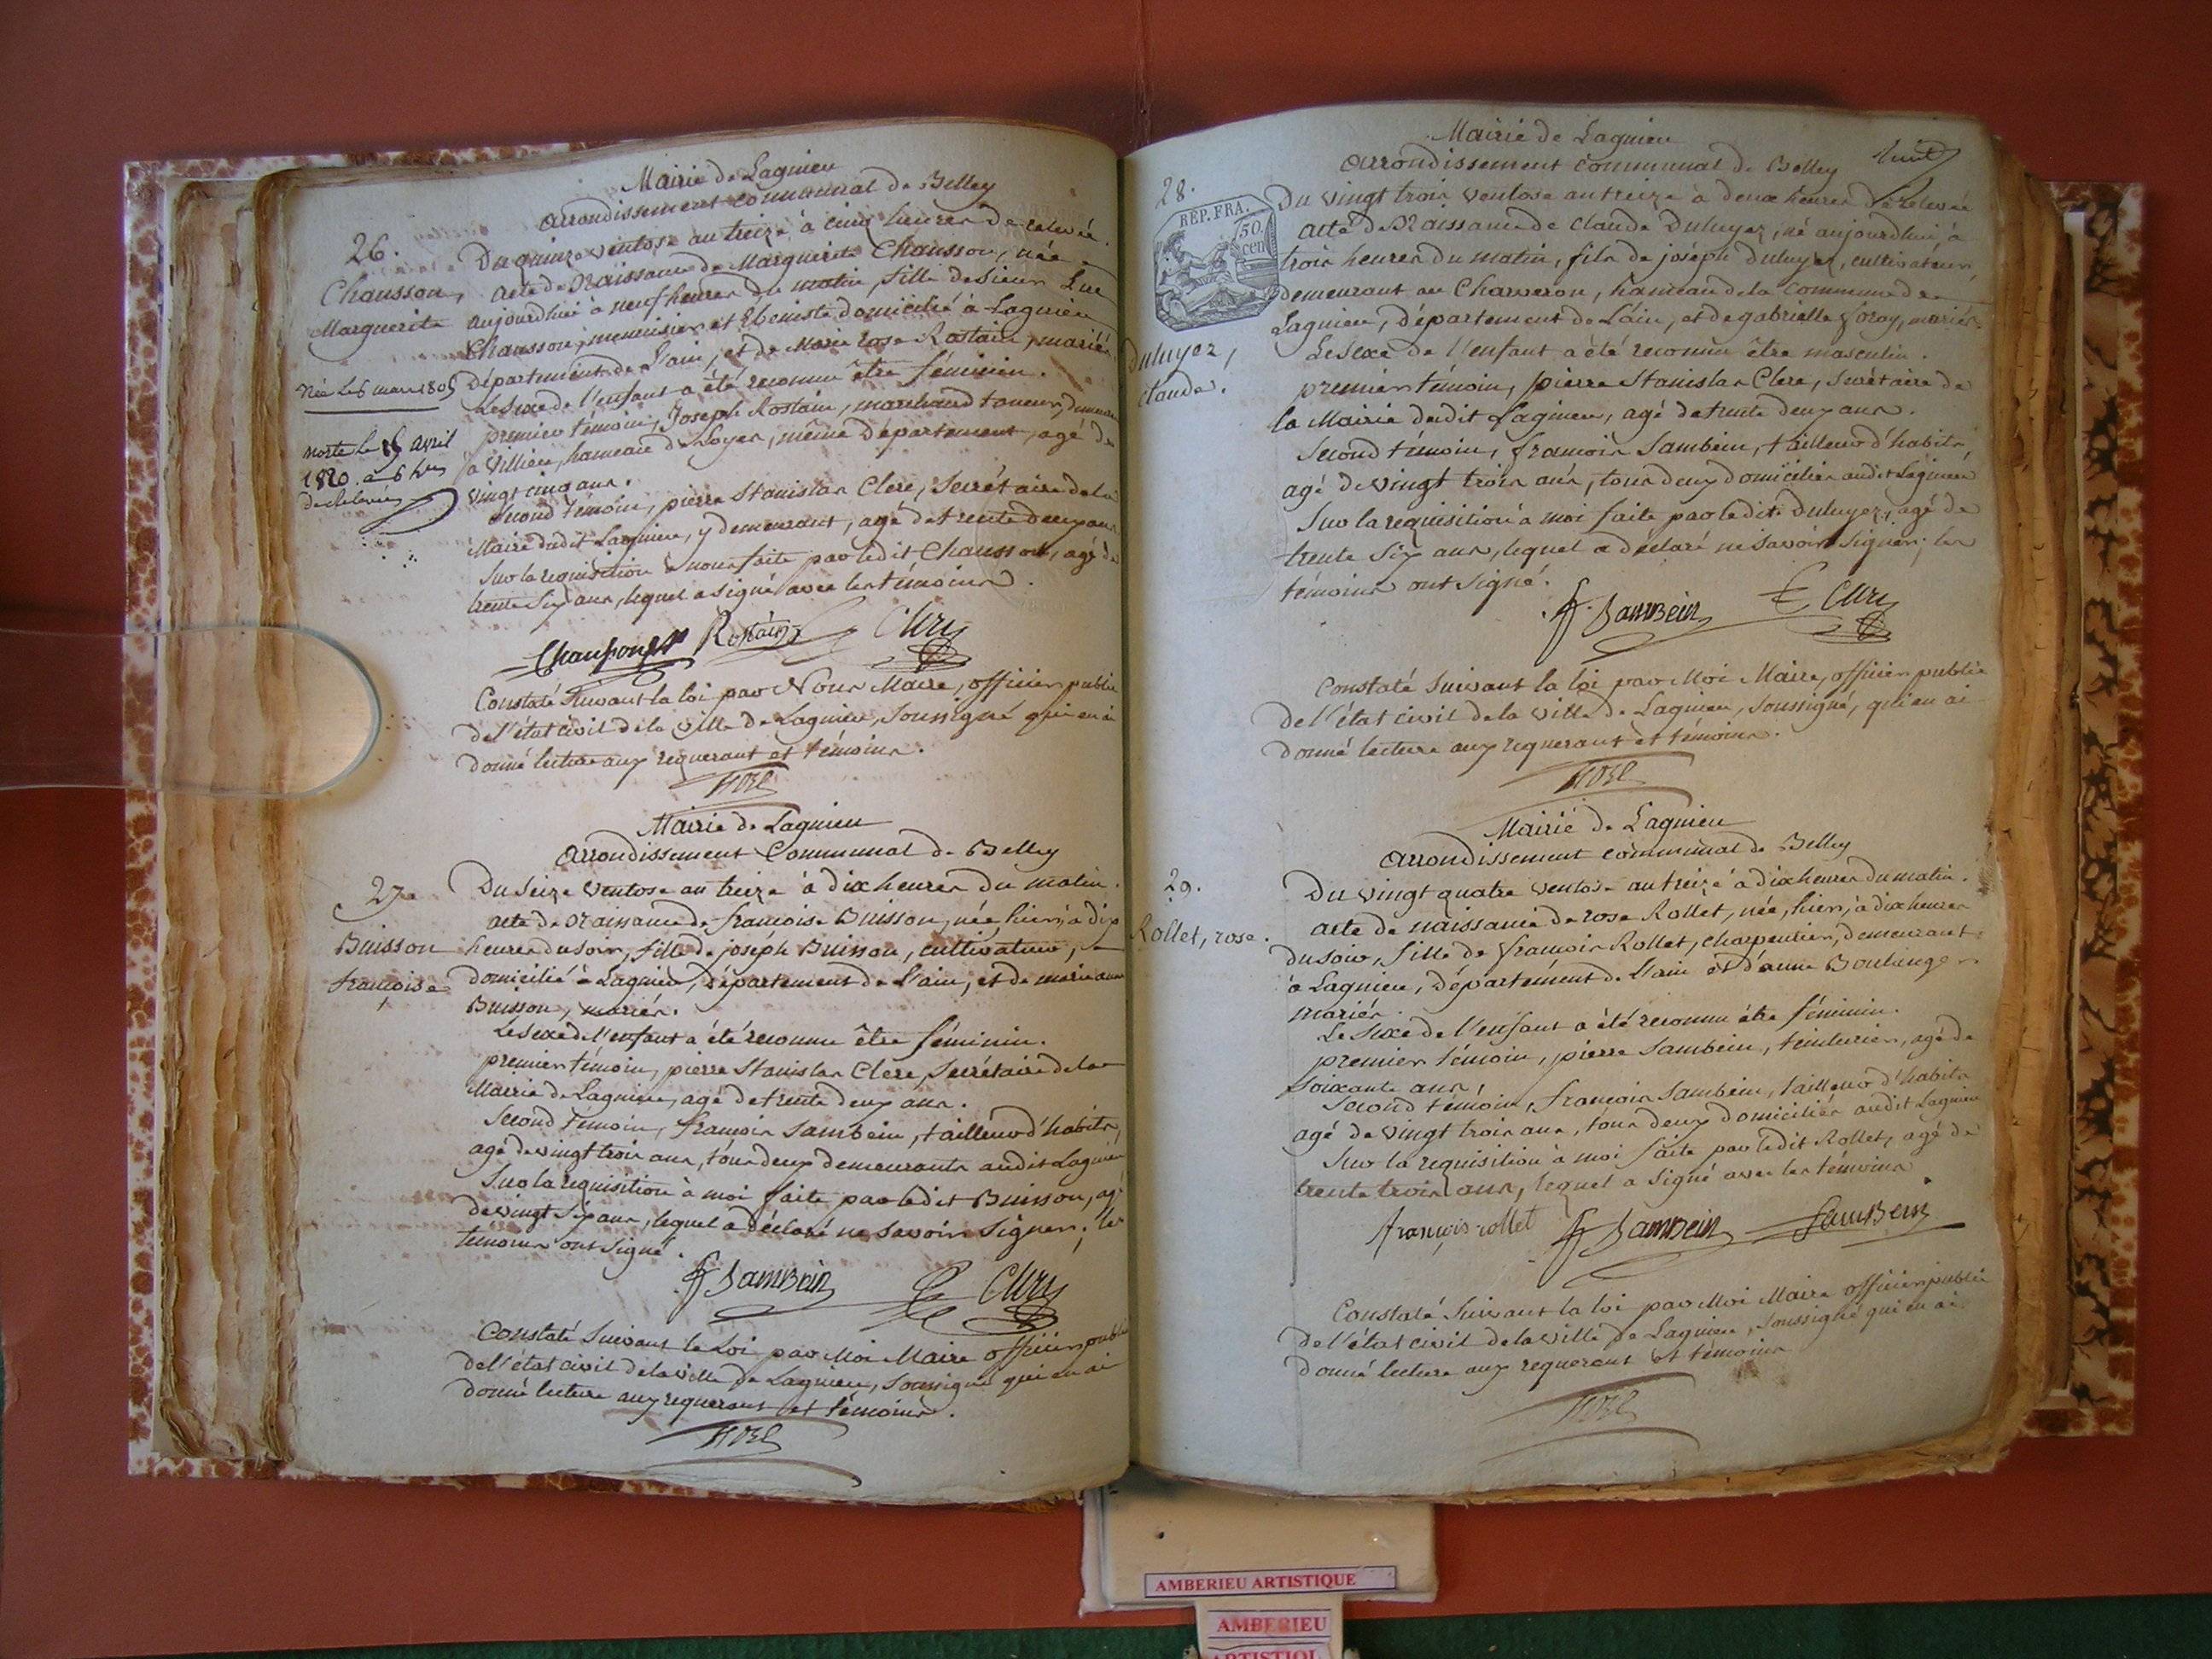 Mairie de Lagnieu
arrondissement communal de Belley
26.
Chausson,
Marguerite
Née le 6 mars 1805
morte le avril
1820. a 6 h
de relevée
Du quinze ventose an treize à cinq heures de relevée.
acte de Naissance de Marguerite Chausson, née
aujourdhui à neuf heures du matin, fille de Sieur Luc
Chausson, menuisier et Ebeniste domicilié à Lagnieu
département de L'ain, et de Marie rose Rostain, mariés
Le Sexe de l'enfant a été reconnu être féminin.
premier témoin, Joseph Rostain, marchand taneur,
à Villieu, hameau de Loyes, même département, agé de
vingt cinq ans.
Second témoin, pierre Stanislas Clerc, Secrétaire de la
Mairie dudit Lagnieu, y demeurant, agé de trente deux ans
Sur la requisition à nous faite par ledit Chausson, agé de
trente Six ans, lequel a signé avec les témoins.
Rostain
Constaté Suivant la loi par Nous Maire, officier public
de l'état civil de la ville de Lagnieu, Soussigné qui en ai
donné lecture aux requerant et témoins.
Mairie de Lagnieu
arrondissement Communal de Belley
27.
Buisson
francoise
Du Seize ventose an treize à dix heures du matin.
acte de naissance de francoise Buisson, née hier, à dix
heures du soir, fille de joseph Buisson, cultivateur,
domicilié à Lagnieu, département de L'ain, et de marie anne
Buisson, mariés.
Le sexe de l'enfant a été reconnu être féminin.
premier témoin, pierre Stanislas Clerc, Secrétaire de la
Mairie de Lagnieu, agé de trente deux ans.
Second témoin, françois Sambein, tailleur d'habits,
agé de vingt trois ans, tous deux demeurants audit Lagnieu
Sur la requisition à moi faite par ledit Buisson, agé
de vingt Six ans, lequel a déclaré ne savoir signer; les
témoins ont Signé.
f Sambein
Constaté Suivant la Loi par Moi Maire officier public
de l'état civil de la ville de Lagnieu, Soussigné qui en ai
donné lecture aux requerant et témoins.
Mairie de Lagnieu
arrondissement communal de Belley
28.
REP. FRA.
50.
cen
Duluyez,
claude.
Du vingt trois Ventose an treize à deux heures de Relevée
acte de Naissance de claude Duluyez, né aujourdhui, à
trois heures du matin, fils de joséph Duluyez, cultivateur,
demeurant au Charveron, hameau de la Commune de
Lagnieu, département de L'ain, et de gabrielle Voray, mariés.
Le Sexe de l'enfant a été reconnu être masculin.
premier témoin, pierre Stanislas Clerc, Secrétaire de
la Mairie dudit Lagnieu, agé de trente deux ans.
Second témoin, françois Sambein, tailleur d'habits
agé de vingt trois ans, tous deux domiciliés audit Lagnieu
Sur la requisition à moi faite par ledit Duluyez, agé de
trente Six ans, lequel a déclaré ne savoir Signer; les
témoins ont Signé.
f Sambein
Constaté Suivant la loi par Moi Maire, officier public
de l'état civil de la ville de Lagnieu, soussigné, qui en ai
donné lecture aux requerant et témoins.
Mairie de Lagnieu
arrondissement communal de Belley
29.
Rollet, rose.
Du vingt quatre ventose an treize à dix heures du matin.
acte de naissance de rose Rollet, née, hier, à dix heures
du soir, fille de françois Rollet, charpentier, demeurant
à Lagnieu, département de L'ain et d'anne Boulanger
mariés.
Le Sexe de l'enfant a été reconnu être féminin.
premier témoin, pierre Sambein, teinturier, agé de
Soixante ans,
Second témoin, françois Sambein, tailleur d'habits
agé de vingt trois ans, tous deux domiciliés audit Lagnieu
Sur la requisition à moi faite par ledit Rollet, agé de
trente trois ans, lequel a Signé avec les témoins
françois rollet f Sambein Sambein
Constaté Suivant la loi par Moi Maire officier public
de l'état civil de la ville de Lagnieu, Soussigné qui en ai
donné lecture aux requerant et témoins
AMBERIEU ARTISTIQUE
AMBERIEU